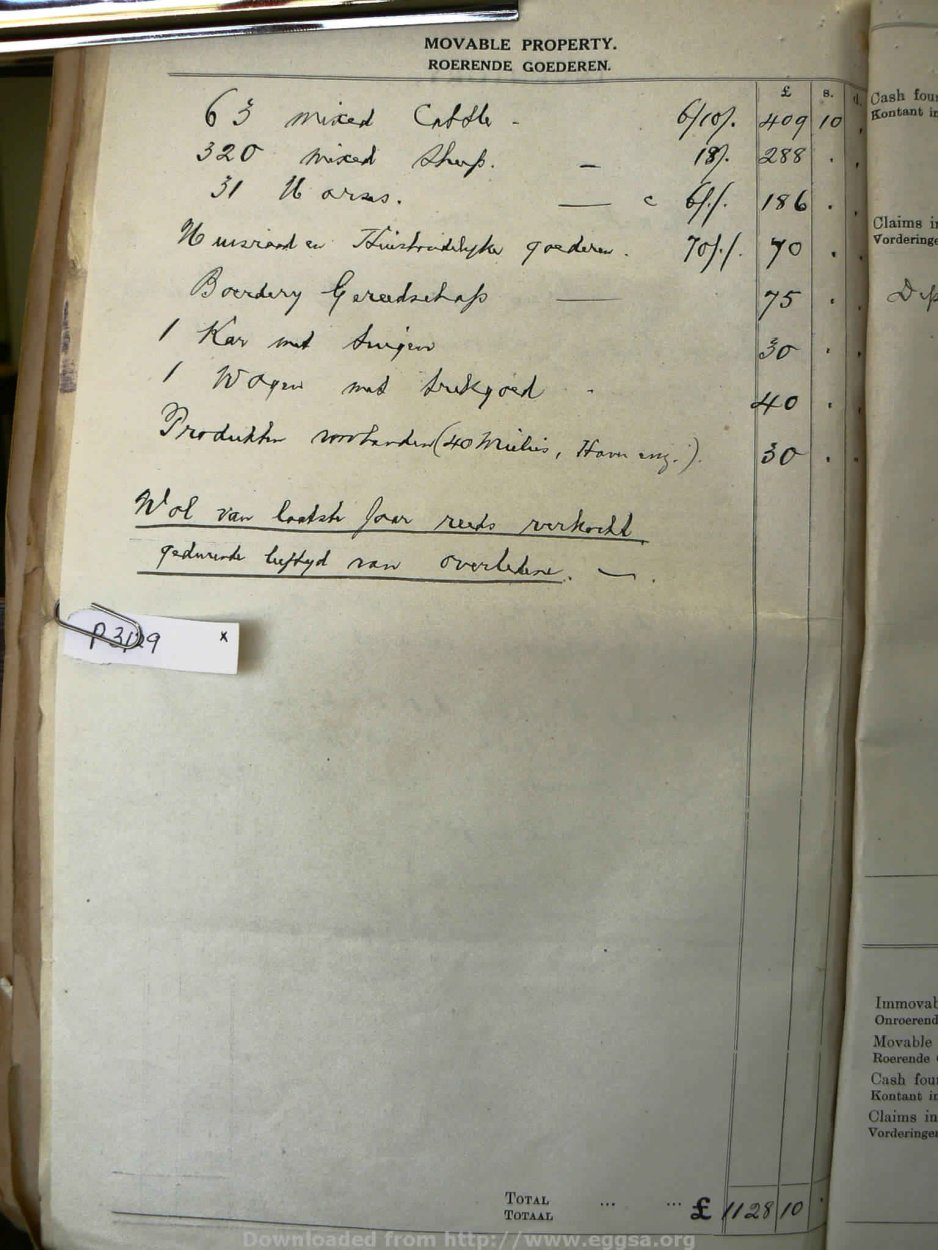 MOVABLE PROPERTY.
ROERENDE GOEDEREN.
£ s. d.
63 mixed Cattle - 6/10/. 409 10
320 mixed Sheep. — 18/. 288 . .
31 Horses. — c 6/./. 186 . .
Huisraad en Huishoudelyke goederen. 70/./. 70 . .
Boerdery Gereedschap — 75 . .
1 Kar met tuigen 30 . .
1 Wagen met trekgoed - 40 . .
Produkten voorhanden (40 Mielies, Haver enz.). 30 . .
Wol van laatste Jaar reeds verkocht
gedurende leeftyd van overledene. —.
P3/29 x
TOTAL ... ... £ 1128 10 .
TOTAAL
Cash four
Kontant in
Claims in
Vorderinge
Immovab
Onroerend
Movable
Roerende
Cash four
Kontant in
Claims in
Vorderingen
Downloaded from http://www.eggsa.org